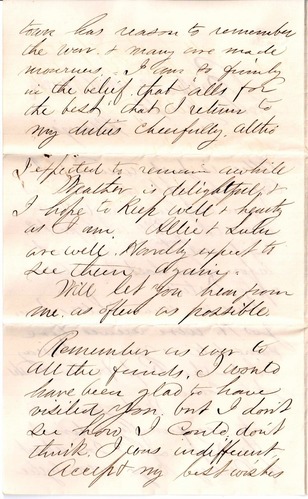 town has reason to remember
the war & many are made
mourners. I am so firmly
in the belief that "alls for
the best" that I return to
my duties cheerfully altho
I expected to remain awhile
Weather is delightful &
I hope to keep well & hearty
as I am. Allie & Lulu
are well. Hardly expect to
see them again.
Will let you hear from
me as often as possible.
Remember us ever to
all the friends. I would
have been glad to have
visited you but I don't
see how I could, don't
think I was indifferent
Accept my best wishes